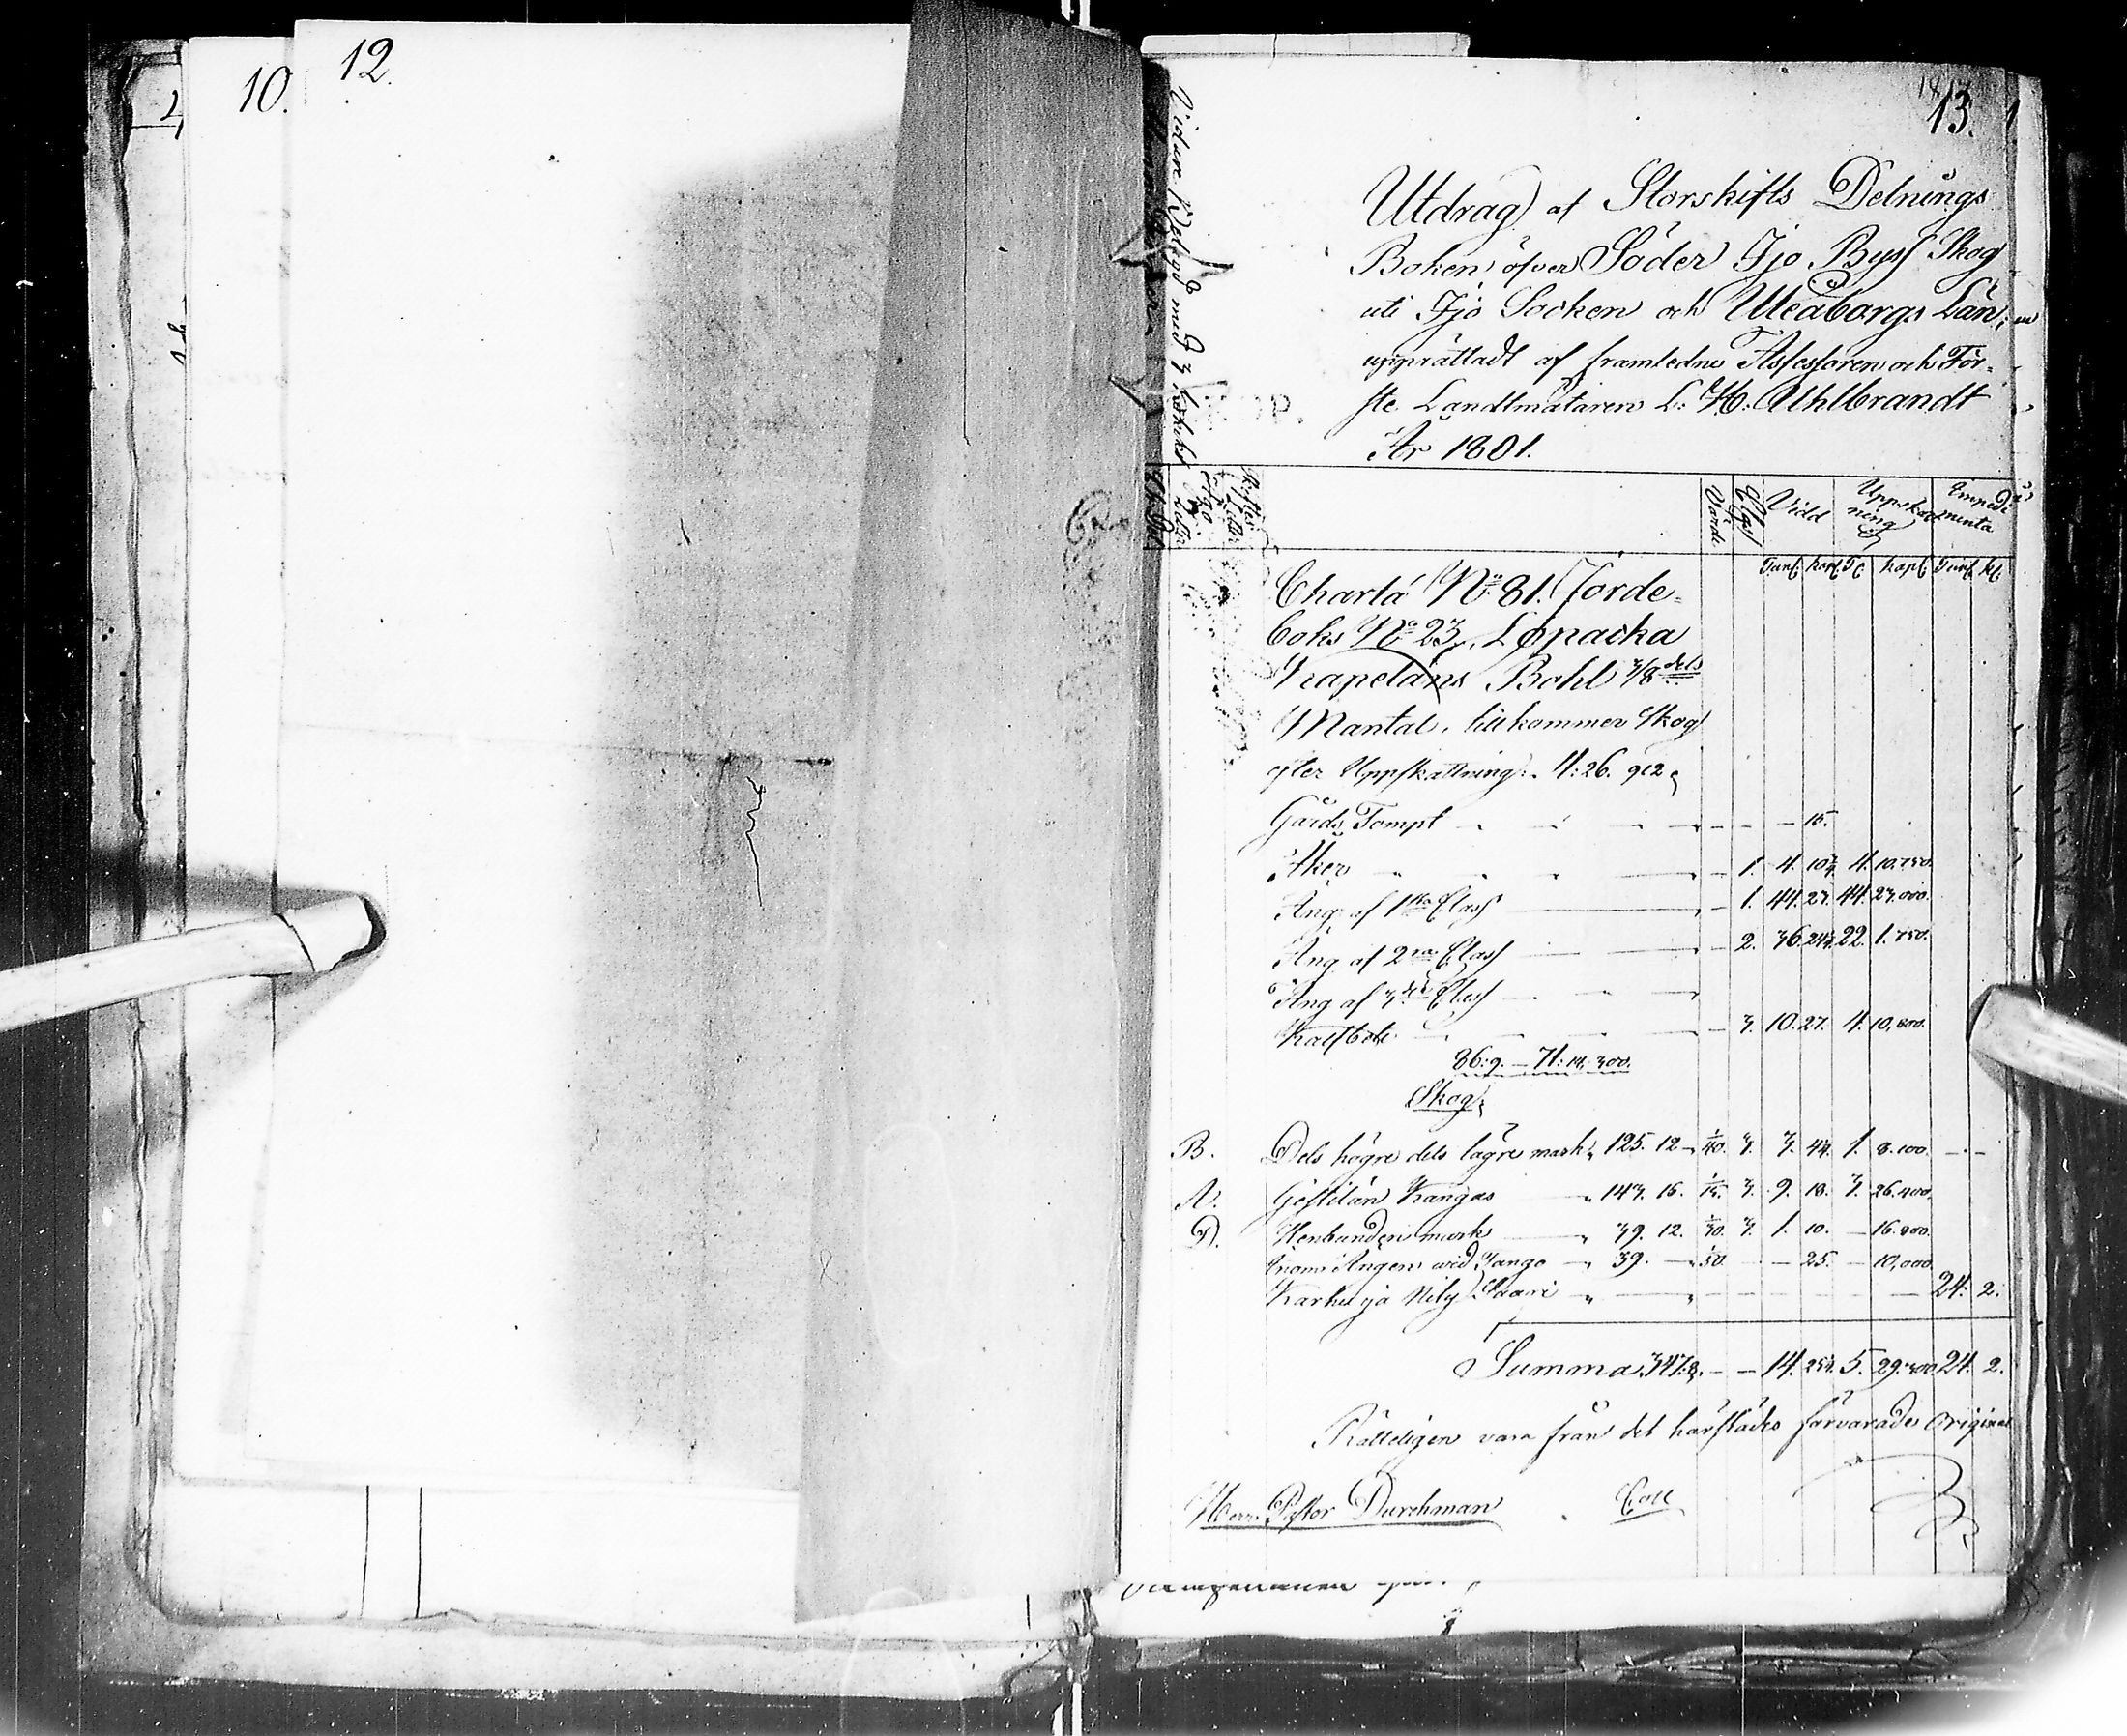 10.
12.
13.
Utdrag af Storskifts Delnings
Boken öfver Söder Ijo Byss Skog
uti Ijo Socken och Uleåborgs Län;
upprättadt af framledne Assessoren och För-
ste Landtmätaren L: H: Ahlbrandt
År 1801.
Värde Class Vidd Uppskattning Impedimenta
Tunl. Kapl. Tl. Kapl. Tunl. Kl.
Charta No 81. Jorde-
boks No 23. Lopacka
Kapelans Bohl 3/8 dels
Mantal, tillkommer Skog
efter Uppskattning. 4:26. 912
Gårds Tompt 15.
Åker 1. 4. 10 3/4 4. 10.750.
Äng af 1sta Class 1. 44. 27. 44. 27.000.
Äng af 2ra Class 2. 36. 24 1/2 22. 1.750.
Äng af 3die Class
Kalfbete 3. 10. 27. 4. 10.800.
86:9. — 71:14,300.
Skog
B. Dels högre dels lägre mark 125. 12 1/40. 3. 3. 4 1/4. 1. 8.100.
N. Gestilän Kangas 143. 16. 1/15. 3. 9. 18. 3. 26.400.
D. Stenbunden mark 39. 12. 1/30. 3. 1. 10. — 16.800.
Inom Ängen wid Tango 39. 1/50 — 25. — 10,000
Karhu ja Saari 24: 2.
Summa 347:8. — — 14. 25 1/4. 5. 29.300 24. 2.
Rätteligen vara från det härstädes förvarade Original
Herr Pastor Durchman Coll